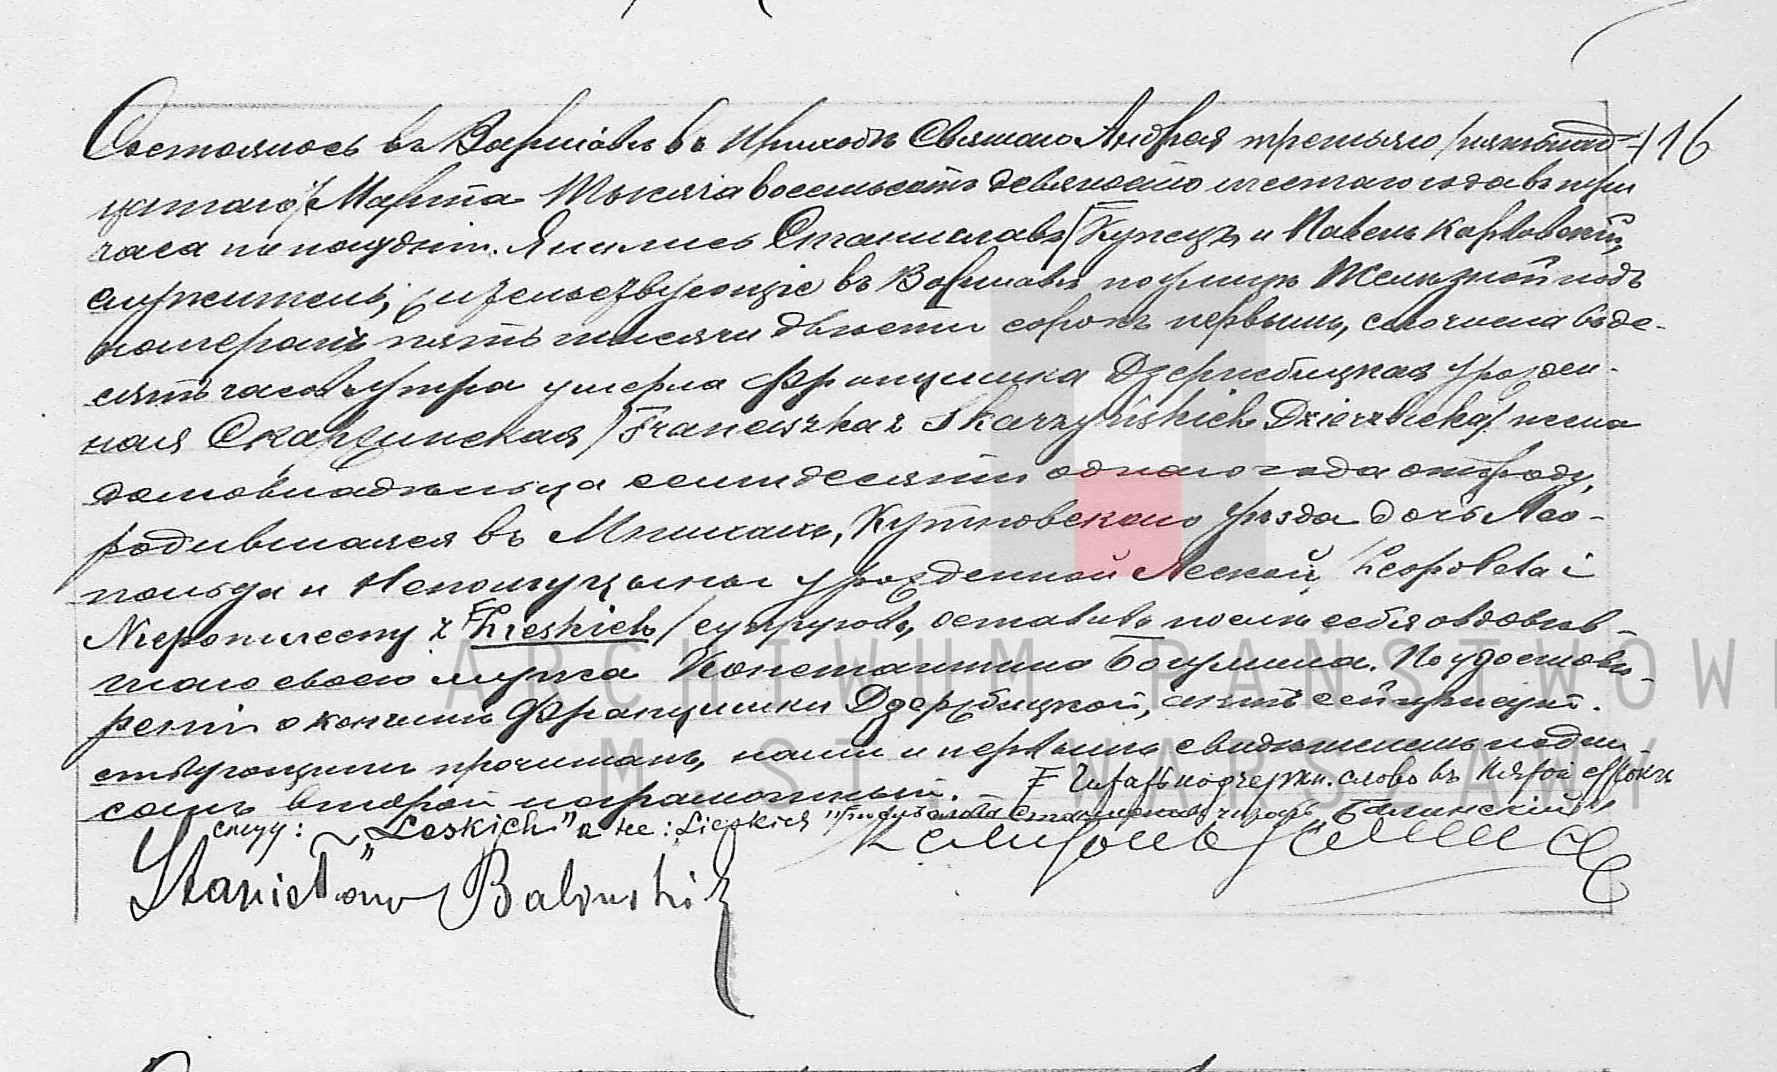 Состоялось въ Варшавѣ въ приходѣ Святаго Андрея третьяго /пятнад- 116
цатаго/ Марта тысяча восемьсотъ девяносто шестаго года въ три
часа по полудни. Явились Станиславъ Купецъ и Павелъ Карловскій,
служитель, жительствующіе въ Варшавѣ по улицѣ Желѣзной подъ
номеромъ пять тысячи двѣсти сорокъ первымъ, сего числа въ де-
сять часовъ утра умерла Францишка Дзержбицкая урожден-
ная Скаржинская /Franciszka z Skarzyńskich Dzierzbicka/
домовладѣлица семидесяти одного года отъ роду,
родившаяся въ Кутновскаго уѣзда дочь Лео-
польда и Непомуцены урожденной Леской, /Leopolda i
Nepomuceny z Lieskich/ супруговъ, оставивъ послѣ себя овдовѣв-
шаго своего мужа Константина Богумила. По удостовѣ-
реніи о кончинѣ Францишки Дзержбицкой, актъ сей присут-
ствующимъ прочитанъ, нами и первымъ свидѣтелемъ подпи-
санъ второй неграмотный. – Читать подчеркн. слово въ пятой строкѣ
снизу: „Leskich" а не: Lieskich слова Станиславъ читать „Балинскій"
Stanisław Baliński